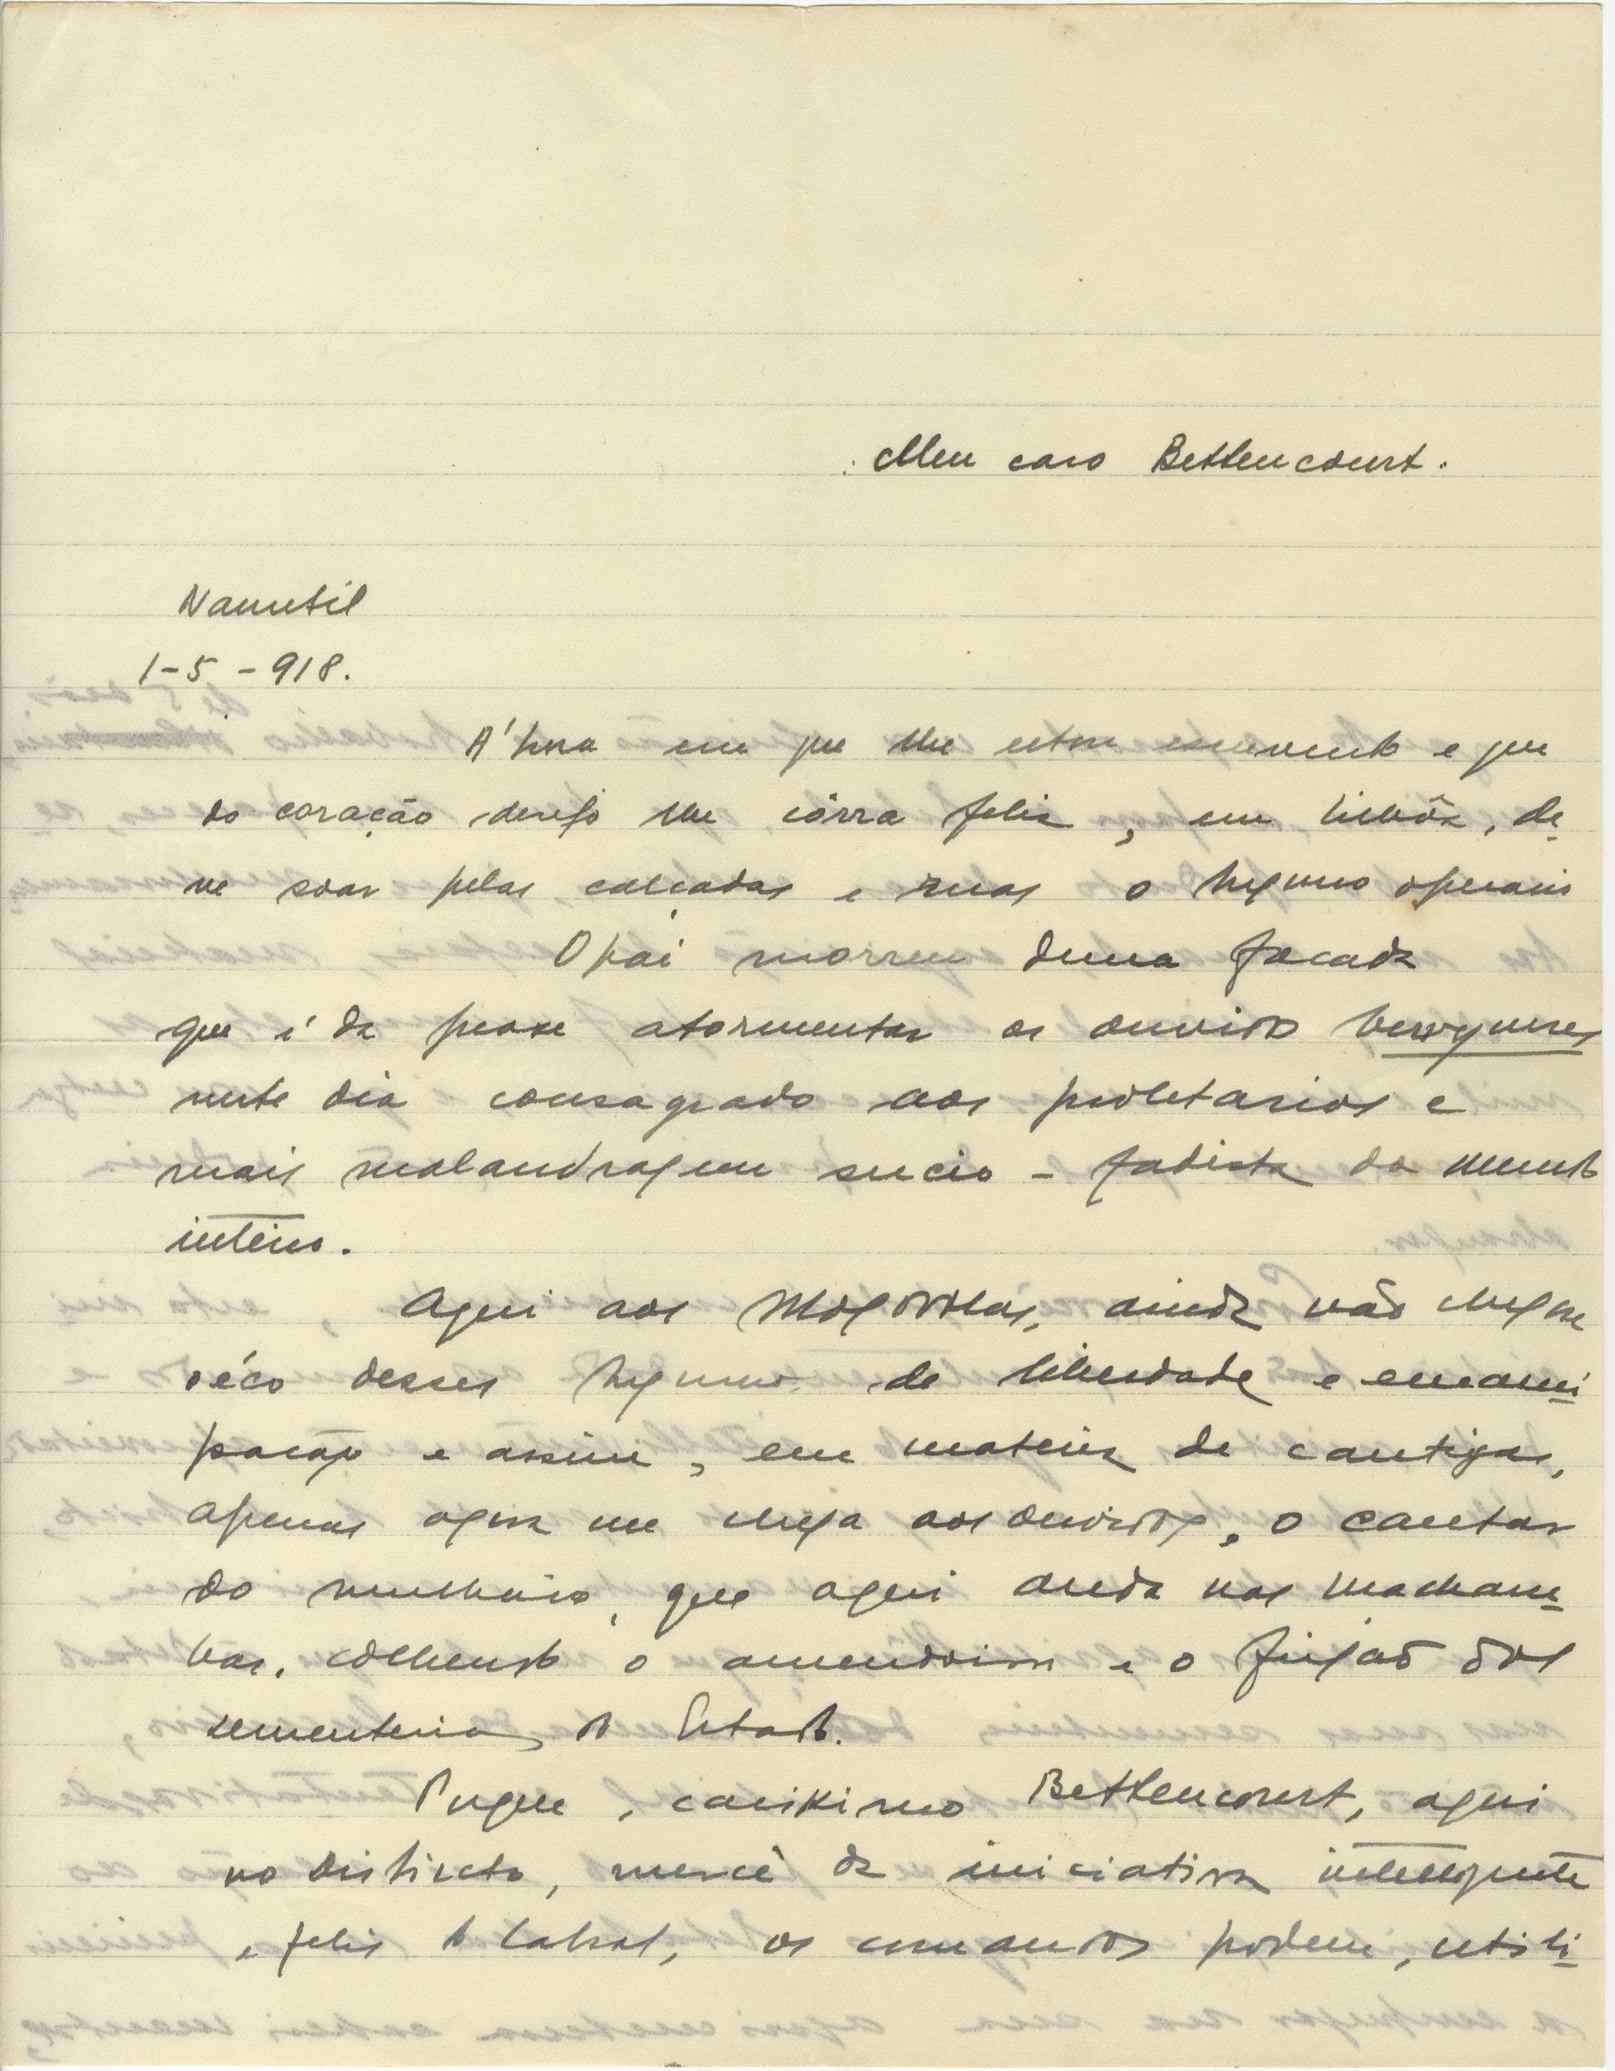 Meu caro Bettencourt.
Nametil
1-5-918.
A' hora em que lhe estou escrevendo e que
do coração desejo lhe côrra feliz, em Lisbôa, de
ve soar pelas calçadas e ruas o hymno operario
O pai morreu duma facada
que é da praxe atormentar os ouvidos burgueses
neste dia consagrado aos proletarios e
mais malandragem sucio-fadista do mundo
inteiro.
Aqui aos Mogovolas, ainda não chegou
o éco desses hymnos de liberdade e emanci
pação e assim, em materia de cantigas,
apenas agora me chega aos ouvidos, o cantar
do mulherio, que aqui anda nas macham
bas, colhendo o amendoim e o feijão das
sementeiras do Estado.
Porque, carissimo Bettencourt, aqui
no districto, mercê da iniciativa intelligente
e feliz do Cabral, os comandos podem, utili